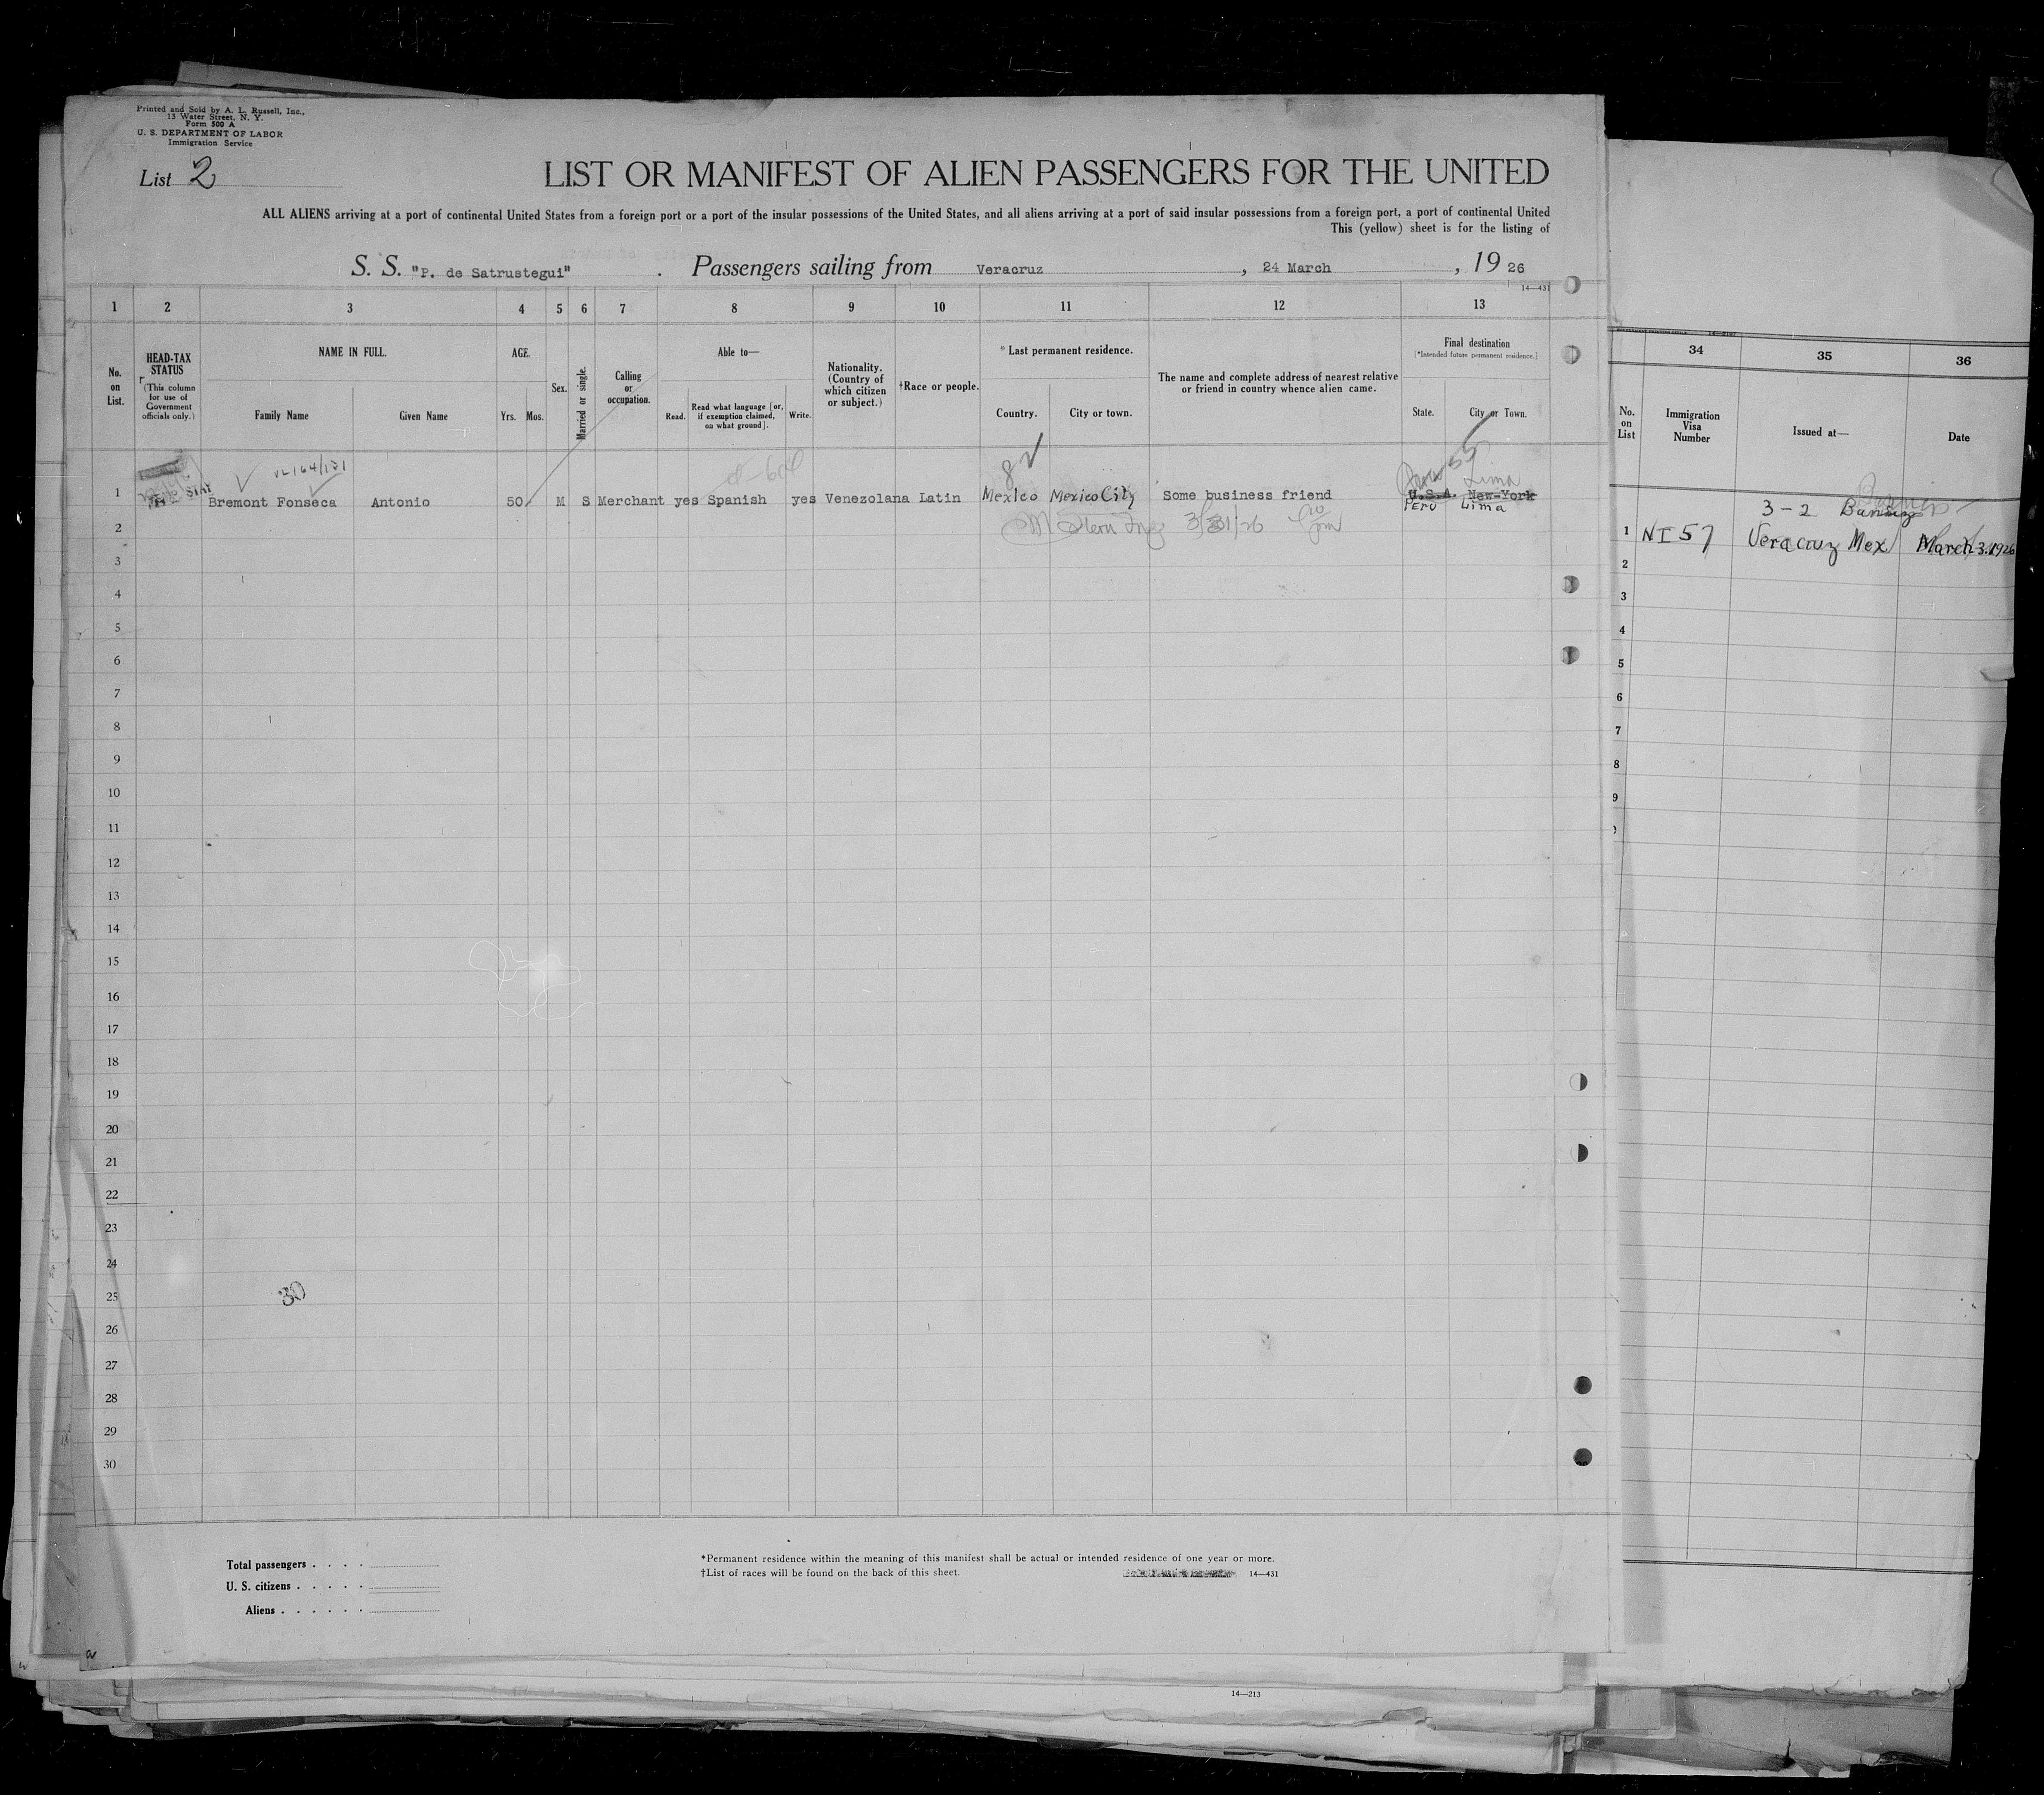 Printed and Sold by A. L. Russell, Inc.,
13 Water Street, N. Y.
Form 500 A
U. S. DEPARTMENT OF LABOR
Immigration Service
List 2
LIST OR MANIFEST OF ALIEN PASSENGERS FOR THE UNITED
ALL ALIENS arriving at a port of continental United States from a foreign port or a port of the insular possessions of the United States, and all aliens arriving at a port of said insular possessions from a foreign port, a port of continental United
This (yellow) sheet is for the listing of
S. S. "P. de Satrustegui" . Passengers sailing from Veracruz , 24 March , 19 26
14—431
1 2 3 4 5 6 7 8 9 10 11 12 13
No. on List.
HEAD-TAX STATUS
(This column for use of Government officials only.)
NAME IN FULL.
Family Name Given Name
AGE.
Yrs. Mos.
Sex.
Married or single.
Calling or occupation.
Able to—
Read. Read what language [or, if exemption claimed, on what ground]. Write.
Nationality. (Country of which citizen or subject.)
†Race or people.
*Last permanent residence.
Country. City or town.
The name and complete address of nearest relative or friend in country whence alien came.
Final destination
[*Intended future permanent residence.]
State. City or Town.
82
Lima
1 Bremont Fonseca Antonio 50 M S Merchant yes Spanish yes Venezolana Latin Mexico Mexico City Some business friend U.S.A. New-York
Peru Lima
2 3/31/26
3
4
5
6
7
8
9
10
11
12
13
14
15
16
17
18
19
20
21
22
23
24
25
26
27
28
29
30
30
Total passengers . . . .
U. S. citizens . . . . .
Aliens . . . . . .
*Permanent residence within the meaning of this manifest shall be actual or intended residence of one year or more.
†List of races will be found on the back of this sheet. 14—431
14—213
34 35 36
No. on List
Immigration Visa Number
Issued at—
Date
3-2
1 NI 57 Veracruz Mex March 3.1926
2
3
4
5
6
7
8
9